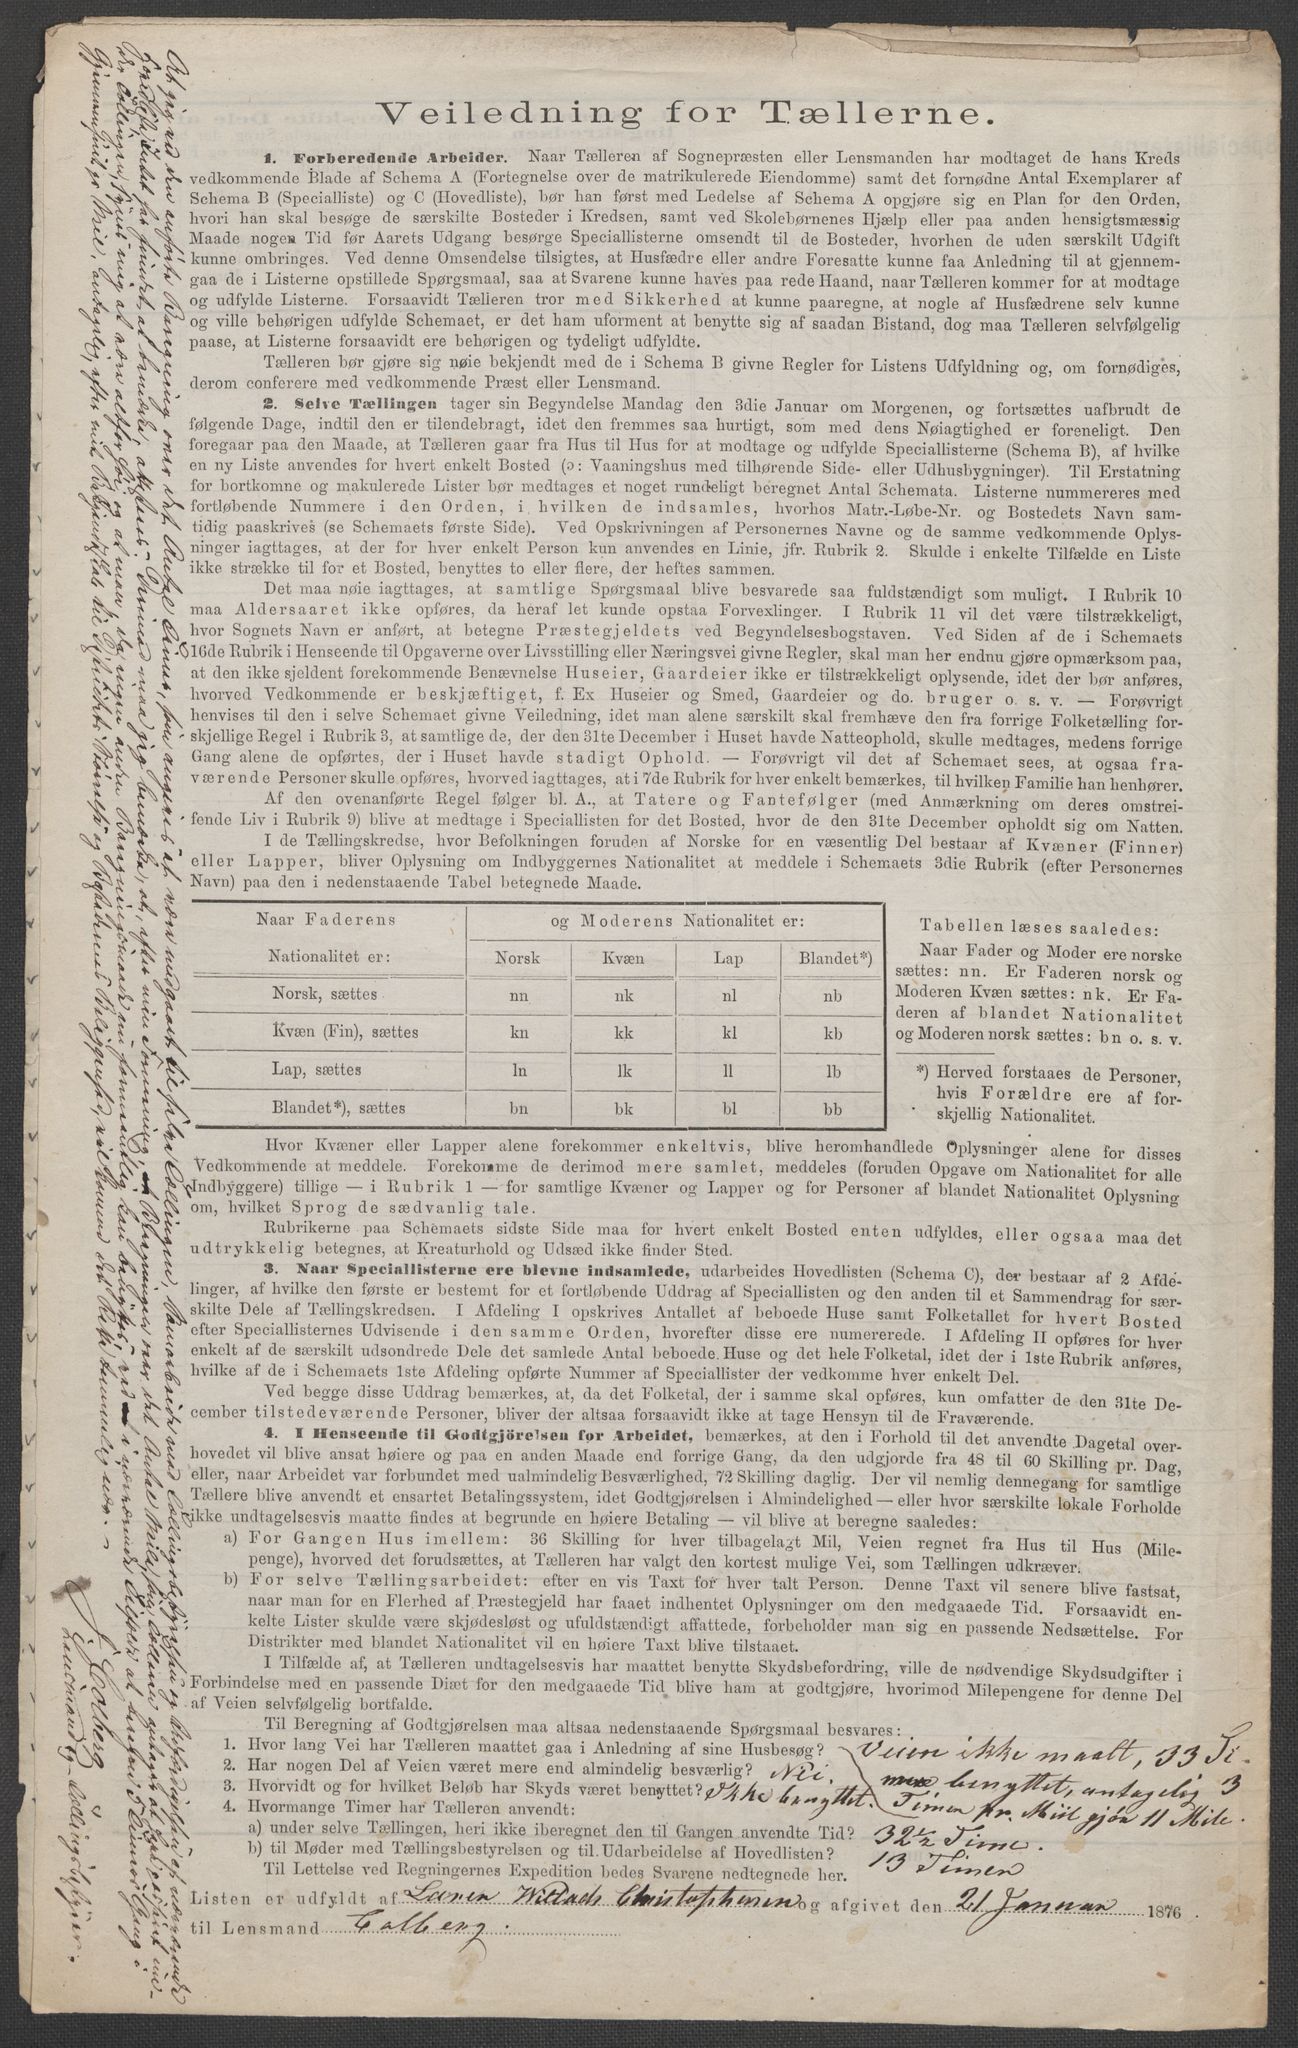 Veiledning for Tællerne.
1. Forberedende Arbeider. Naar Tælleren af Sognepræsten eller Lensmanden har modtaget de hans Kreds
vedkommende Blade af Schema A (Fortegnelse over de matrikulerede Eiendomme) samt det fornødne Antal Exemplarer af
Schema B (Specialliste) og C (Hovedliste), bør han først med Ledelse af Schema A opgjøre sig en Plan for den Orden,
hvori han skal besøge de særskilte Bosteder i Kredsen, samt ved Skolebørnenes Hjælp eller paa anden hensigtsmæssig
Maade nogen Tid før Aarets Udgang besørge Speciallisterne omsendt til de Bosteder, hvorhen de uden særskilt Udgift
kunne ombringes. Ved denne Omsendelse tilsigtes, at Husfædre eller andre Foresatte kunne faa Anledning til at gjennem-
gaa de i Listerne opstillede Spørgsmaal, saa at Svarene kunne haves paa rede Haand, naar Tælleren kommer for at modtage
og udfylde Listerne. Forsaavidt Tælleren tror med Sikkerhed at kunne paaregne, at nogle af Husfædrene selv kunne
og ville behørigen udfylde Schemaet, er det ham uforment at benytte sig af saadan Bistand, dog maa Tælleren selvfølgelig
paase, at Listerne forsaavidt ere behørigen og tydeligt udfyldte.
Tælleren bør gjøre sig nøie bekjendt med de i Schema B givne Regler for Listens Udfyldning og, om fornødiges,
derom conferere med vedkommende Præst eller Lensmand.
2. Selve Tællingen tager sin Begyndelse Mandag den 3die Januar om Morgenen, og fortsættes uafbrudt de
følgende Dage, indtil den er tilendebragt, idet den fremmes saa hurtigt, som med dens Nøiagtighed er foreneligt. Den
foregaar paa den Maade, at Tælleren gaar fra Hus til Hus for at modtage og udfylde Speciallisterne (Schema B), af hvilke
en ny Liste anvendes for hvert enkelt Bosted (ɔ: Vaaningshus med tilhørende Side- eller Udhusbygninger). Til Erstatning
for bortkomne og makulerede Lister bør medtages et noget rundeligt beregnet Antal Schemata. Listerne nummereres med
fortløbende Nummere i den Orden, i hvilken de indsamles, hvorhos Matr.-Løbe-Nr. og Bostedets Navn sam-
tidig paaskrives (se Schemaets første Side). Ved Opskrivningen af Personernes Navne og de samme vedkommende Oplys-
ninger iagttages, at der for hver enkelt Person kun anvendes en Linie, jfr. Rubrik 2. Skulde i enkelte Tilfælde en Liste
ikke strække til for et Bosted, benyttes to eller flere, der heftes sammen.
Det maa nøie iagttages, at samtlige Spørgsmaal blive besvarede saa fuldstændigt som muligt. I Rubrik 10
maa Aldersaaret ikke opføres, da heraf let kunde opstaa Forvexlinger. I Rubrik 11 vil det være tilstrækkeligt,
hvor Sognets Navn er anført, at betegne Præstegjeldets ved Begyndelsesbogstaven. Ved Siden af de i Schemaets
16de Rubrik i Henseende til Opgaverne over Livsstilling eller Næringsvei givne Regler, skal man her endnu gjøre opmærksom paa,
at den ikke sjeldent forekommende Benævnelse Huseier, Gaardeier ikke er tilstrækkeligt oplysende, idet der bør anføres,
hvorved Vedkommende er beskjæftiget, f. Ex Huseier og Smed, Gaardeier og do. bruger o. s. v. — Forøvrigt
henvises til den i selve Schemaet givne Veiledning, idet man alene særskilt skal fremhæve den fra forrige Folketælling for-
skjellige Regel i Rubrik 3, at samtlige de, der den 31te December i Huset havde Natteophold, skulle medtages, medens forrige
Gang alene de opførtes, der i Huset havde stadigt Ophold. — Forøvrigt vil det af Schemaet sees, at ogsaa fra-
værende Personer skulle opføres, hvorved iagttages, at i 7de Rubrik for hver enkelt bemærkes, til hvilken Familie han henhører.
Af den ovenanførte Regel følger bl. A., at Tatere og Fantefølger (med Anmærkning om deres omstrei-
fende Liv i Rubrik 9) blive at medtage i Speciallisten for det Bosted, hvor de den 31te December opholdt sig om Natten.
I de Tællingskredse, hvor Befolkningen foruden af Norske for en væsentlig Del bestaar af Kvæner (Finner)
eller Lapper, bliver Oplysning om Indbyggernes Nationalitet at meddele i Schemaets 3die Rubrik (efter Personernes
Navn) paa den i nedenstaaende Tabel betegnede Maade.
Naar Faderens og Moderens Nationalitet er:
Nationalitet er: Norsk Kvæn Lap Blandet*)
Norsk, sættes nn nk nl nb
Kvæn (Fin), sættes kn kk kl kb
Lap, sættes ln lk ll lb
Blandet*), sættes bn bk bl bb
Tabellen læses saaledes:
Naar Fader og Moder ere norske
sættes: nn. Er Faderen norsk og
Moderen Kvæn sættes: nk. Er Fa-
deren af blandet Nationalitet
og Moderen norsk sættes: bn o. s. v.
*) Herved forstaaes de Personer,
hvis Forældre ere af for-
skjellig Nationalitet.
Hvor Kvæner eller Lapper alene forekommer enkeltvis, blive heromhandlede Oplysninger alene for disses
Vedkommende at meddele. Forekomme de derimod mere samlet, meddeles (foruden Opgave om Nationalitet for alle
Indbyggere) tillige — i Rubrik 1 — for samtlige Kvæner og Lapper og for Personer af blandet Nationalitet Oplysning
om, hvilket Sprog de sædvanlig tale.
Rubrikerne paa Schemaets sidste Side maa for hvert enkelt Bosted enten udfyldes, eller ogsaa maa det
udtrykkelig betegnes, at Kreaturhold og Udsæd ikke finder Sted.
3. Naar Speciallisterne ere blevne indsamlede, udarbeides Hovedlisten (Schema C), der bestaar af 2 Afde-
linger, af hvilke den første er bestemt for et fortløbende Uddrag af Speciallisten og den anden til et Sammendrag for sær-
skilte Dele af Tællingskredsen. I Afdeling I opskrives Antallet af beboede Huse samt Folketallet for hvert Bosted
efter Speciallisternes Udvisende i den samme Orden, hvorefter disse ere numererede. I Afdeling II opføres for hver
enkelt af de særskilt udsondrede Dele det samlede Antal beboede Huse og det hele Folketal, idet der i 1ste Rubrik anføres,
hvilke af de i Schemaets 1ste Afdeling opførte Nummer af Speciallister der vedkomme hver enkelt Del.
Ved begge disse Uddrag bemærkes, at, da det Folketal, der i samme skal opføres, kun omfatter de den 31te De-
cember tilstedeværende Personer, bliver der altsaa forsaavidt ikke at tage Hensyn til de Fraværende.
4. I Henseende til Godtgjörelsen for Arbeidet, bemærkes, at den i Forhold til det anvendte Dagetal over-
hovedet vil blive ansat høiere og paa en anden Maade end forrige Gang, da den udgjorde fra 48 til 60 Skilling pr. Dag,
eller, naar Arbeidet var forbundet med ualmindelig Besværlighed, 72 Skilling daglig. Der vil nemlig dennegang for samtlige
Tællere blive anvendt et ensartet Betalingssystem, idet Godtgjørelsen i Almindelighed — eller hvor særskilte lokale Forholde
ikke undtagelsesvis maatte findes at begrunde en høiere Betaling — vil blive at beregne saaledes:
a) For Gangen Hus imellem: 36 Skilling for hver tilbagelagt Mil, Veien regnet fra Hus til Hus (Mile-
penge), hvorved det forudsættes, at Tælleren har valgt den kortest mulige Vei, som Tællingen udkræver.
b) For selve Tællingsarbeidet: efter en vis Taxt for hver talt Person. Denne Taxt vil senere blive fastsat,
naar man for en Flerhed af Præstegjeld har faaet indhentet Oplysninger om den medgaaede Tid. Forsaavidt en-
kelte Lister skulde være skjødesløst og ufuldstændigt affattede, forbeholder man sig en passende Nedsættelse. For
Distrikter med blandet Nationalitet vil en høiere Taxt blive tilstaaet.
I Tilfælde af, at Tælleren undtagelsesvis har maattet benytte Skydsbefordring, ville de nødvendige Skydsudgifter i
Forbindelse med en passende Diæt for den medgaaede Tid blive ham at godtgjøre, hvorimod Milepengene for denne Del
af Veien selvfølgelig bortfalde.
Til Beregning af Godtgjørelsen maa altsaa nedenstaaende Spørgsmaal besvares:
1. Hvor lang Vei har Tælleren maattet gaa i Anledning af sine Husbesøg? Veien ikke maalt, 33 Ti-
mer benyttet, antagelig 3
Timer pr. Miil gjør 11 Mile.
2. Har nogen Del af Veien været mere end almindelig besværlig? Nei.
3. Hvorvidt og for hvilket Beløb har Skyds været benyttet? Ikke benyttet.
4. Hvormange Timer har Tælleren anvendt:
a) under selve Tællingen, heri ikke iberegnet den til Gangen anvendte Tid? 32½ Time.
b) til Møder med Tællingsbestyrelsen og til Udarbeidelse af Hovedlisten? 13 Timer
Til Lettelse ved Regningernes Expedition bedes Svarene nedtegnede her.
Listen er udfyldt af Christophersen og afgivet den 21 Januar 1876
til Lensmand Colberg.
J. Colberg